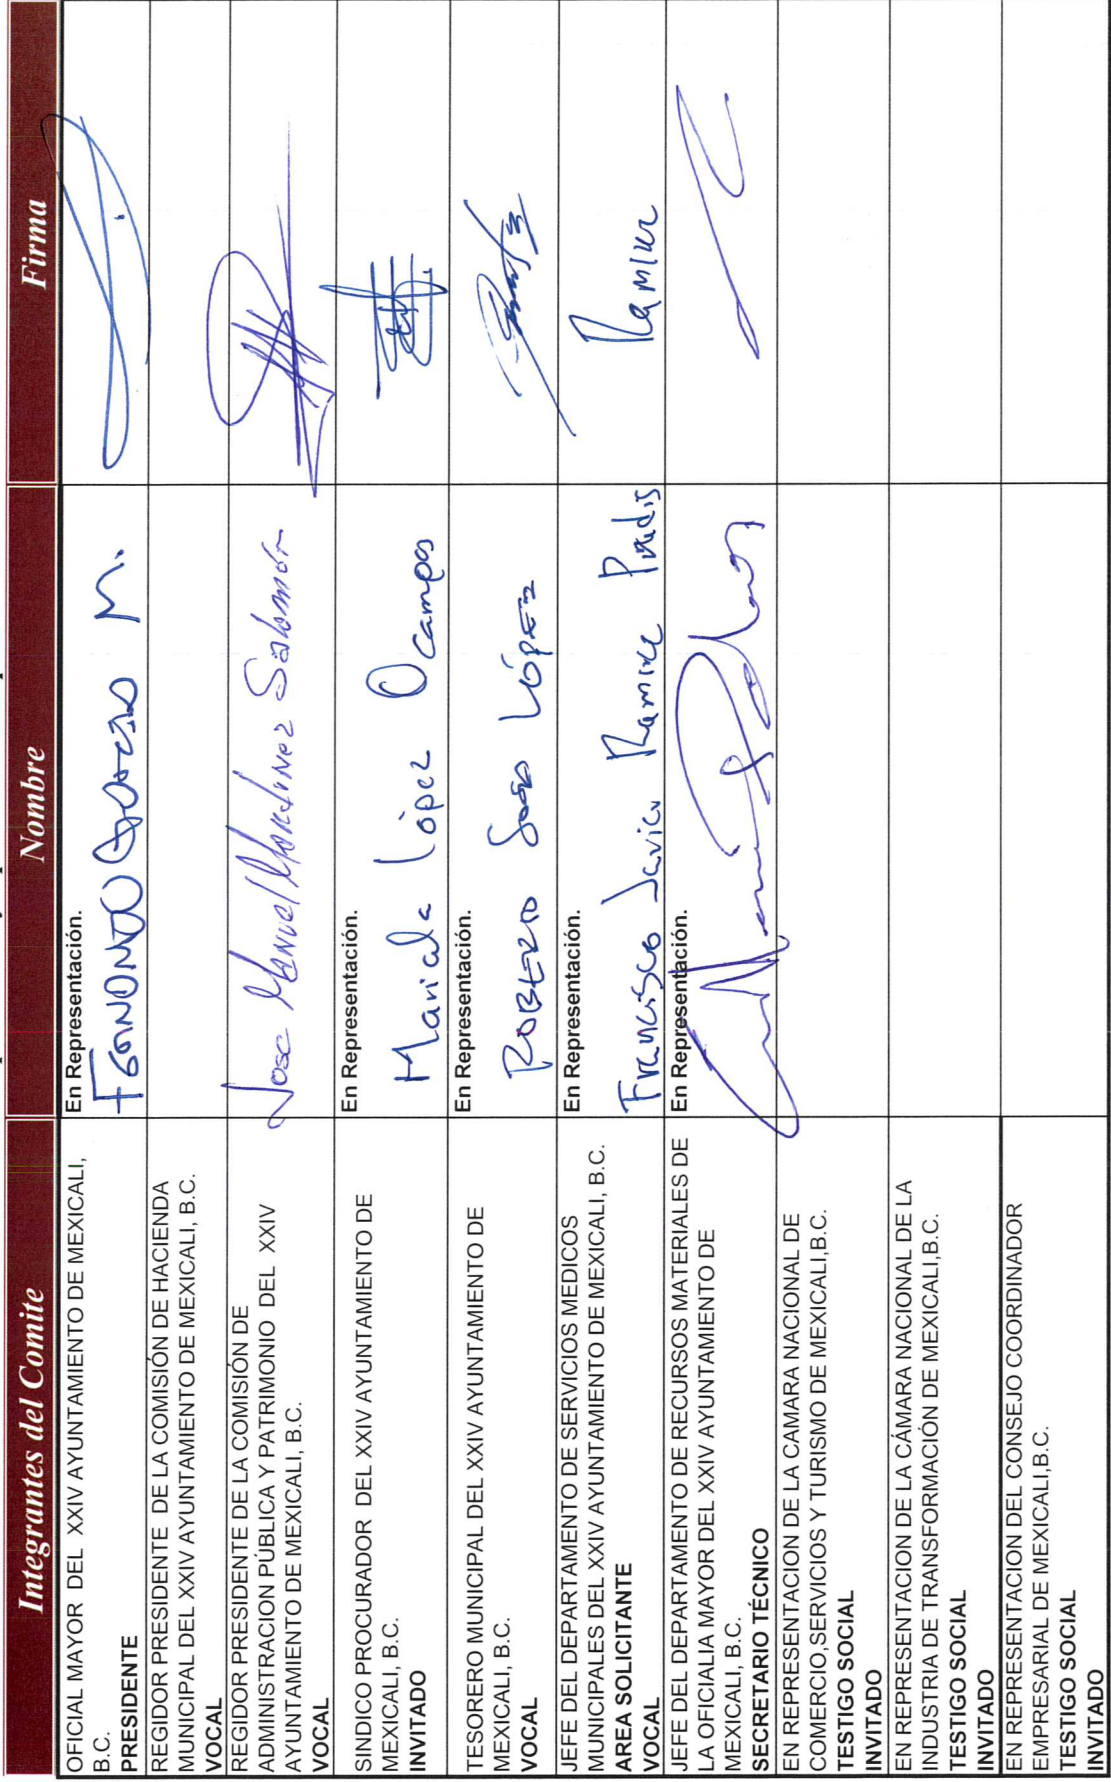 Integrantes del Comite
Nombre
Firma
OFICIAL MAYOR DEL XXIV AYUNTAMIENTO DE MEXICALI,
B.C.
PRESIDENTE
En Representación.
M.
REGIDOR PRESIDENTE DE LA COMISIÓN DE HACIENDA
MUNICIPAL DEL XXIV AYUNTAMIENTO DE MEXICALI, B.C.
VOCAL
REGIDOR PRESIDENTE DE LA COMISIÓN DE
ADMINISTRACION PÚBLICA Y PATRIMONIO DEL XXIV
AYUNTAMIENTO DE MEXICALI, B.C.
VOCAL
Jose Manuel Martinez Salomón
SINDICO PROCURADOR DEL XXIV AYUNTAMIENTO DE
MEXICALI, B.C.
INVITADO
En Representación.
Maricela López Ocampos
TESORERO MUNICIPAL DEL XXIV AYUNTAMIENTO DE
MEXICALI, B.C.
VOCAL
En Representación.
ROBERTO Sosa LÓPEZ
JEFE DEL DEPARTAMENTO DE SERVICIOS MEDICOS
MUNICIPALES DEL XXIV AYUNTAMIENTO DE MEXICALI, B.C.
AREA SOLICITANTE
VOCAL
En Representación.
Francisco Javier Ramirez
Ramirez
JEFE DEL DEPARTAMENTO DE RECURSOS MATERIALES DE
LA OFICIALIA MAYOR DEL XXIV AYUNTAMIENTO DE
MEXICALI, B.C.
SECRETARIO TÉCNICO
En Representación.
EN REPRESENTACION DE LA CAMARA NACIONAL DE
COMERCIO,SERVICIOS Y TURISMO DE MEXICALI,B.C.
TESTIGO SOCIAL
INVITADO
EN REPRESENTACION DE LA CÁMARA NACIONAL DE LA
INDUSTRIA DE TRANSFORMACIÓN DE MEXICALI,B.C.
TESTIGO SOCIAL
INVITADO
EN REPRESENTACION DEL CONSEJO COORDINADOR
EMPRESARIAL DE MEXICALI,B.C.
TESTIGO SOCIAL
INVITADO